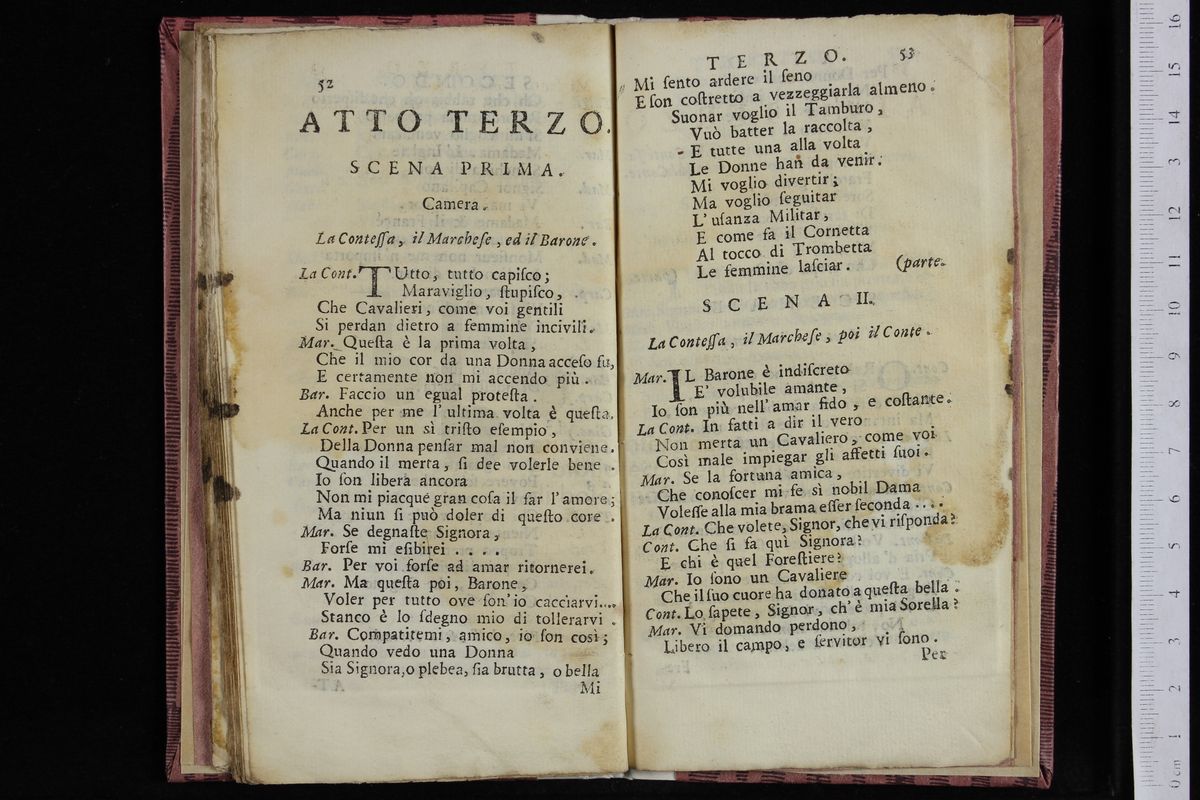 52
ATTO TERZO.
SCENA PRIMA.
Camera.
La Conteſſa, il Marcheſe, ed il Barone.
La Cont. TUtto, tutto capiſco;
Maraviglio, ſtupiſco,
Che Cavalieri, come voi gentili
Si perdan dietro a femmine incivili.
Mar. Queſta è la prima volta,
Che il mio cor da una Donna acceſo fu,
E certamente non mi accendo più.
Bar. Faccio un' egual proteſta.
Anche per me l'ultima volta è queſta.
La Cont. Per un sì triſto eſempio,
Della Donna penſar mal non conviene.
Quando il merta, ſi dee volerle bene.
Io ſon libera ancora
Non mi piacque gran coſa il far l'amore;
Ma niun ſi può doler di queſto core.
Mar. Se degnaſte Signora,
Forſe mi eſibirei ....
Bar. Per voi forſe ad amar ritornerei.
Mar. Ma queſta poi, Barone,
Voler per tutto ove ſon'io cacciarvi....
Stanco è lo ſdegno mio di tollerarvi.
Bar. Compatitemi, amico, io ſon così;
Quando vedo una Donna
Sia Signora, o plebea, ſia brutta, o bella
Mi
TERZO. 53
Mi ſento ardere il ſeno
E ſon coſtretto a vezzeggiarla almeno.
Suonar voglio il Tamburo,
Vuò batter la raccolta,
E tutte una alla volta
Le Donne han da venir.
Mi voglio divertir;
Ma voglio ſeguitar
L'uſanza Militar,
E come fa il Cornetta
Al tocco di Trombetta
Le femmine laſciar. (parte.
SCENA II.
La Conteſſa, il Marcheſe, poi il Conte.
Mar. IL Barone è indiſcreto
E' volubile amante,
Io ſon più nell'amar fido, e coſtante.
La Cont. In fatti a dir il vero
Non merta un Cavaliero, come voi
Così male impiegar gli affetti ſuoi.
Mar. Se la fortuna amica,
Che conoſcer mi fe sì nobil Dama
Voleſſe alla mia brama eſſer ſeconda ....
La Cont. Che volete, Signor, che vi riſponda?
Cont. Che ſi fa quì Signora?
E chi è quel Foreſtiere?
Mar. Io ſono un Cavaliere
Che il ſuo cuore ha donato a queſta bella.
Cont. Lo ſapete, Signor, ch'è mia Sorella?
Mar. Vi domando perdono,
Libero il campo, e ſervitor vi ſono.
Per